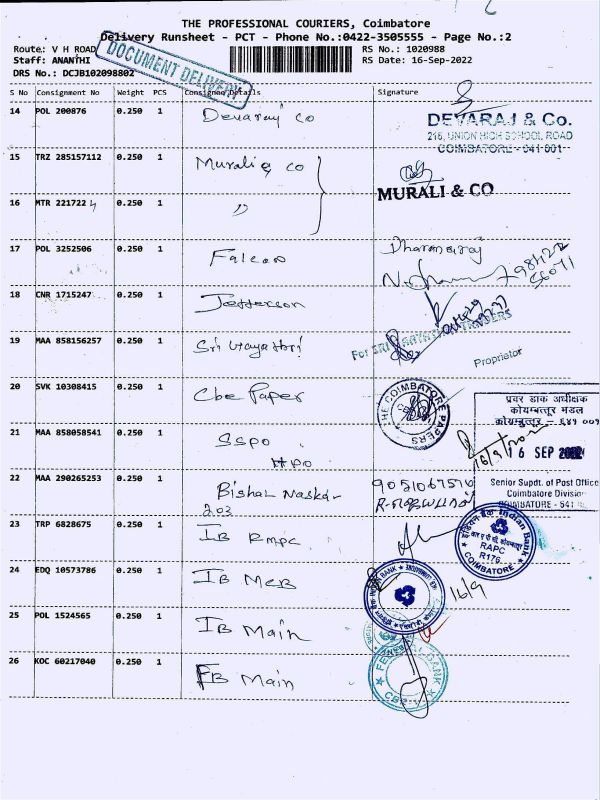 THE PROFESSIONAL COURIERS, Coimbatore
Delivery Runsheet - PCT - Phone No.:0422-3505555 - Page No.:2
Route: V H ROAD
Staff: ANANTHI
DRS No.: DCJB102098802
DOCUMENT DELIVERY
RS No.: 1020988
RS Date: 16-Sep-2022
S No Consignment No Weight PCS Consignee Details Signature
14 POL 200876 0.250 1 Devaraj co
DEVARAJ & Co.
215, UNION HIGH SCHOOL ROAD
COIMBATORE - 641 001
15 TRZ 285157112 0.250 1 Murali & co
MURALI & CO
16 MTR 221722 4 0.250 1 "
17 POL 3252506 0.250 1 Falcon Dharanairaj
18 CNR 1715247 0.250 1 Jefferson
19 MAA 858156257 0.250 1 Sri
For SRI TRADERS
Proprietor
20 SVK 10308415 0.250 1 Cbe Paper
THE COIMBATORE PAPERS
प्रवर डाक अधीक्षक
कोयम्बत्तूर मंडल
कोयम्बत्तूर – ६४१ ००१
21 MAA 858058541 0.250 1 SSPO
HPO
16/9
16 SEP 2022
Senior Supdt. of Post Office
Coimbatore Division
COIMBATORE - 641
22 MAA 290265253 0.250 1 Bishal Naskar 9051067570
203
23 TRP 6828675 0.250 1 IB RMPC
Indian Bank
RAPC
R176
COIMBATORE
24 EDQ 10573786 0.250 1 IB MCB
16/9
25 POL 1524565 0.250 1 IB Main
26 KOC 60217040 0.250 1 FB Main